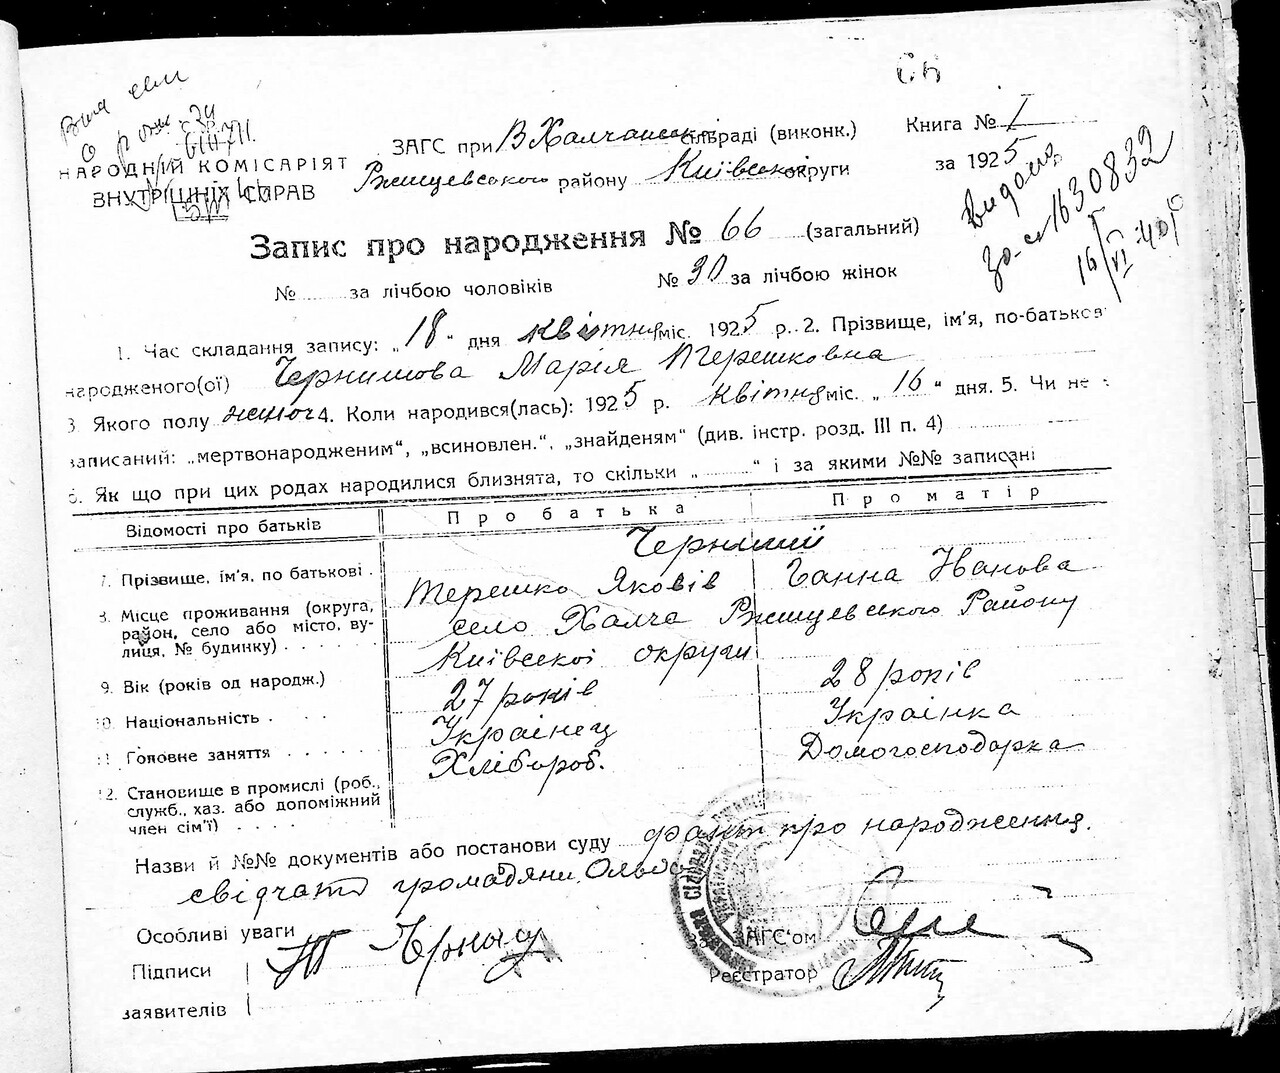 НАРОДНІЙ КОМІСАРІЯТ
ВНУТРІШНІХ СПРАВ
ЗАГС при В Халчанськ сільраді (виконк.)
Ржищевського району Київської округи
Книга № I
за 1925
видано
1630832
Запис про народження № 66 (загальний)
№ за лічбою чоловіків № 30 за лічбою жінок
1. Час складання запису: „18“ дня квітня міс. 1925 р. 2. Прізвище, ім'я, по-батькові
народженого(ої) Чернишова Марія Терешковна
3. Якого полу жіноч 4. Коли народився(лась): 1925 р. квітня міс. „16“ дня. 5. Чи не
записаний: „мертвонародженим“, „всиновлен.“, „знайденям“ (див. інстр. розд. III п. 4)
6. Як що при цих родах народилися близнята, то скільки „ “ і за якими №№ записані
Відомості про батьків Про батька Про матір
Черниший
7. Прізвище, ім'я, по батькові Терешко Яковів Ганна Іванова
8. Місце проживання (округа, район, село або місто, ву-
лиця, № будинку) село Халча Ржищевського Району
Київської округи
9. Вік (років од народж.) 27 років 28 років
10. Національність Українец Українка
11. Головне заняття Хлібороб. Домогосподарка
12. Становище в промислі (роб.,
служб., хаз. або допоміжний
член сім'ї)
Назви й №№ документів або постанови суду факт про народження
свідчать громадяни Ольш
Особливі уваги
Підписи
заявителів
ЗАГС'ом
Реєстратор